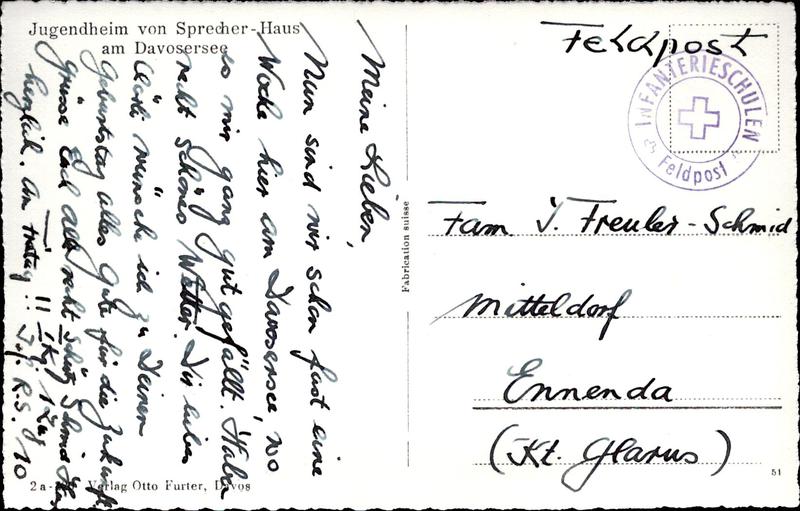 Jugendheim von Sprecher-Haus
am Davosersee
Meine Lieben,
Nun sind wir schon fast eine
Woche hier am Davosersee, wo
es mir ganz gut gefällt. Haben
recht schönes Wetter. Dir liebes
wünsche ich zu Deinem
Geburtstag alles Gute für die Zukunft.
Grüsse Euch alle recht
herzlich. Am Freitag !!
Schütz Schmid
I. Kp. 1. Zug
Inf. R.S. 10
2a- Verlag Otto Furter, Davos
Fabrication suisse
Feldpost
INFANTERIESCHULEN
Feldpost
Fam J. Freuler-Schmid
Mitteldorf
Ennenda
(Kt. Glarus)
51